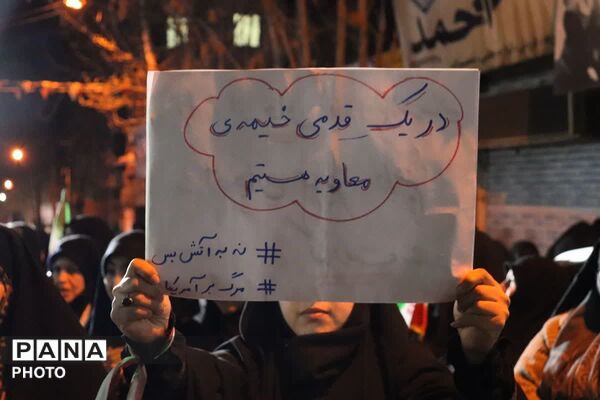 احمد
در یک قدمی خیمه‌ی
معاویه هستیم
# نه به آتش بس
# مرگ بر آمریکا
PANA
PHOTO